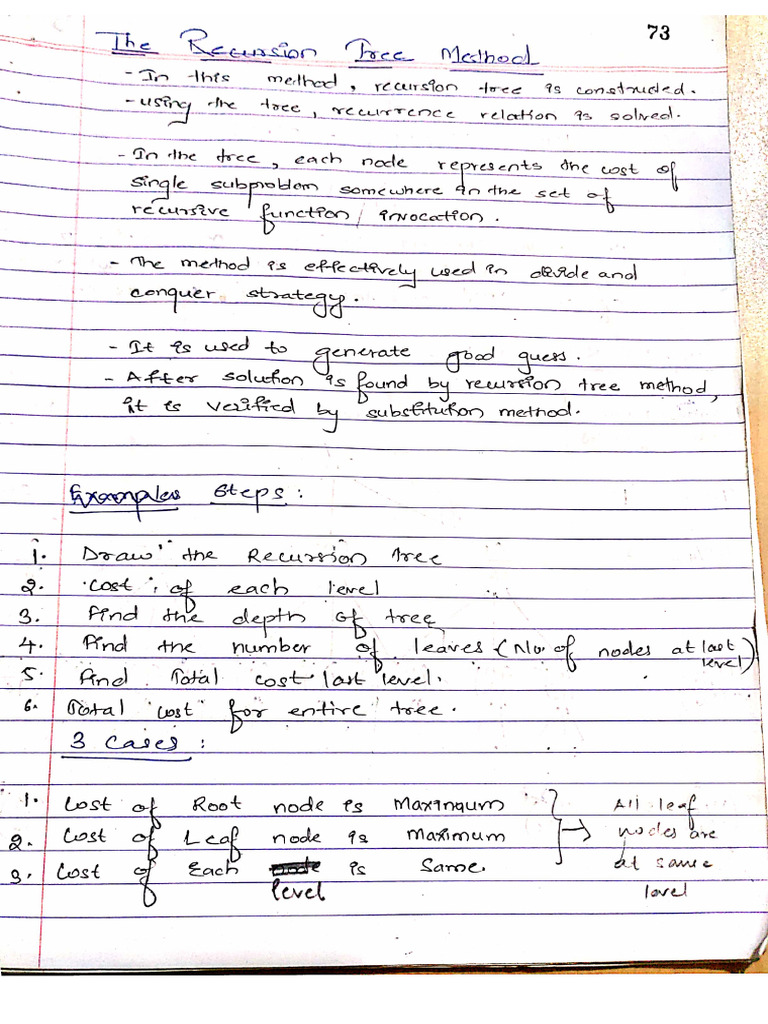 73
The Recursion Tree Method
- In this method, recursion tree is constructed.
- using the tree, recurrence relation is solved.
- In the tree, each node represents the cost of
single subproblem somewhere in the set of
recursive function/invocation.
- The method is effectively used in divide and
conquer strategy.
- It is used to generate good guess.
- After solution is found by recursion tree method,
it is verified by substitution method.
Examples Steps:
1. Draw the Recursion tree
2. Cost of each level
3. Find the depth of tree
4. Find the number of leaves (No. of nodes at last
level)
5. Find Total cost last level.
6. Total cost for entire tree.
3 Cases:
1. Cost of Root node is Maximum
2. Cost of Leaf node is maximum
3. Cost of Each node is Same.
level
All leaf
nodes are
at same
level